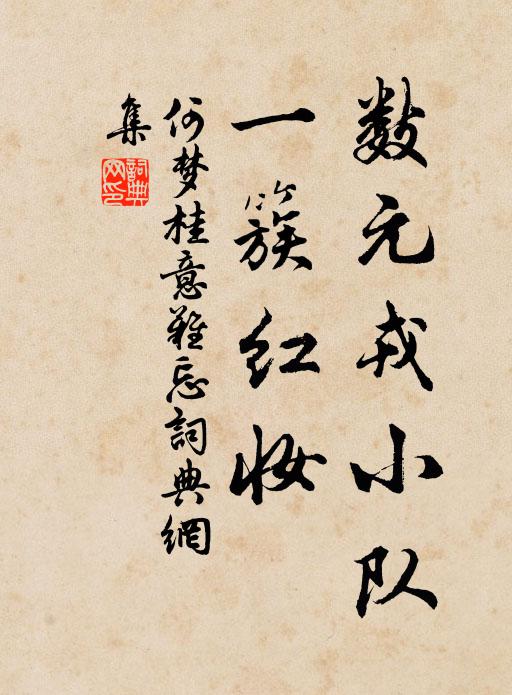 数元戎小队
一簇红妆
何梦桂意难忘詞典網
集
詞典网印